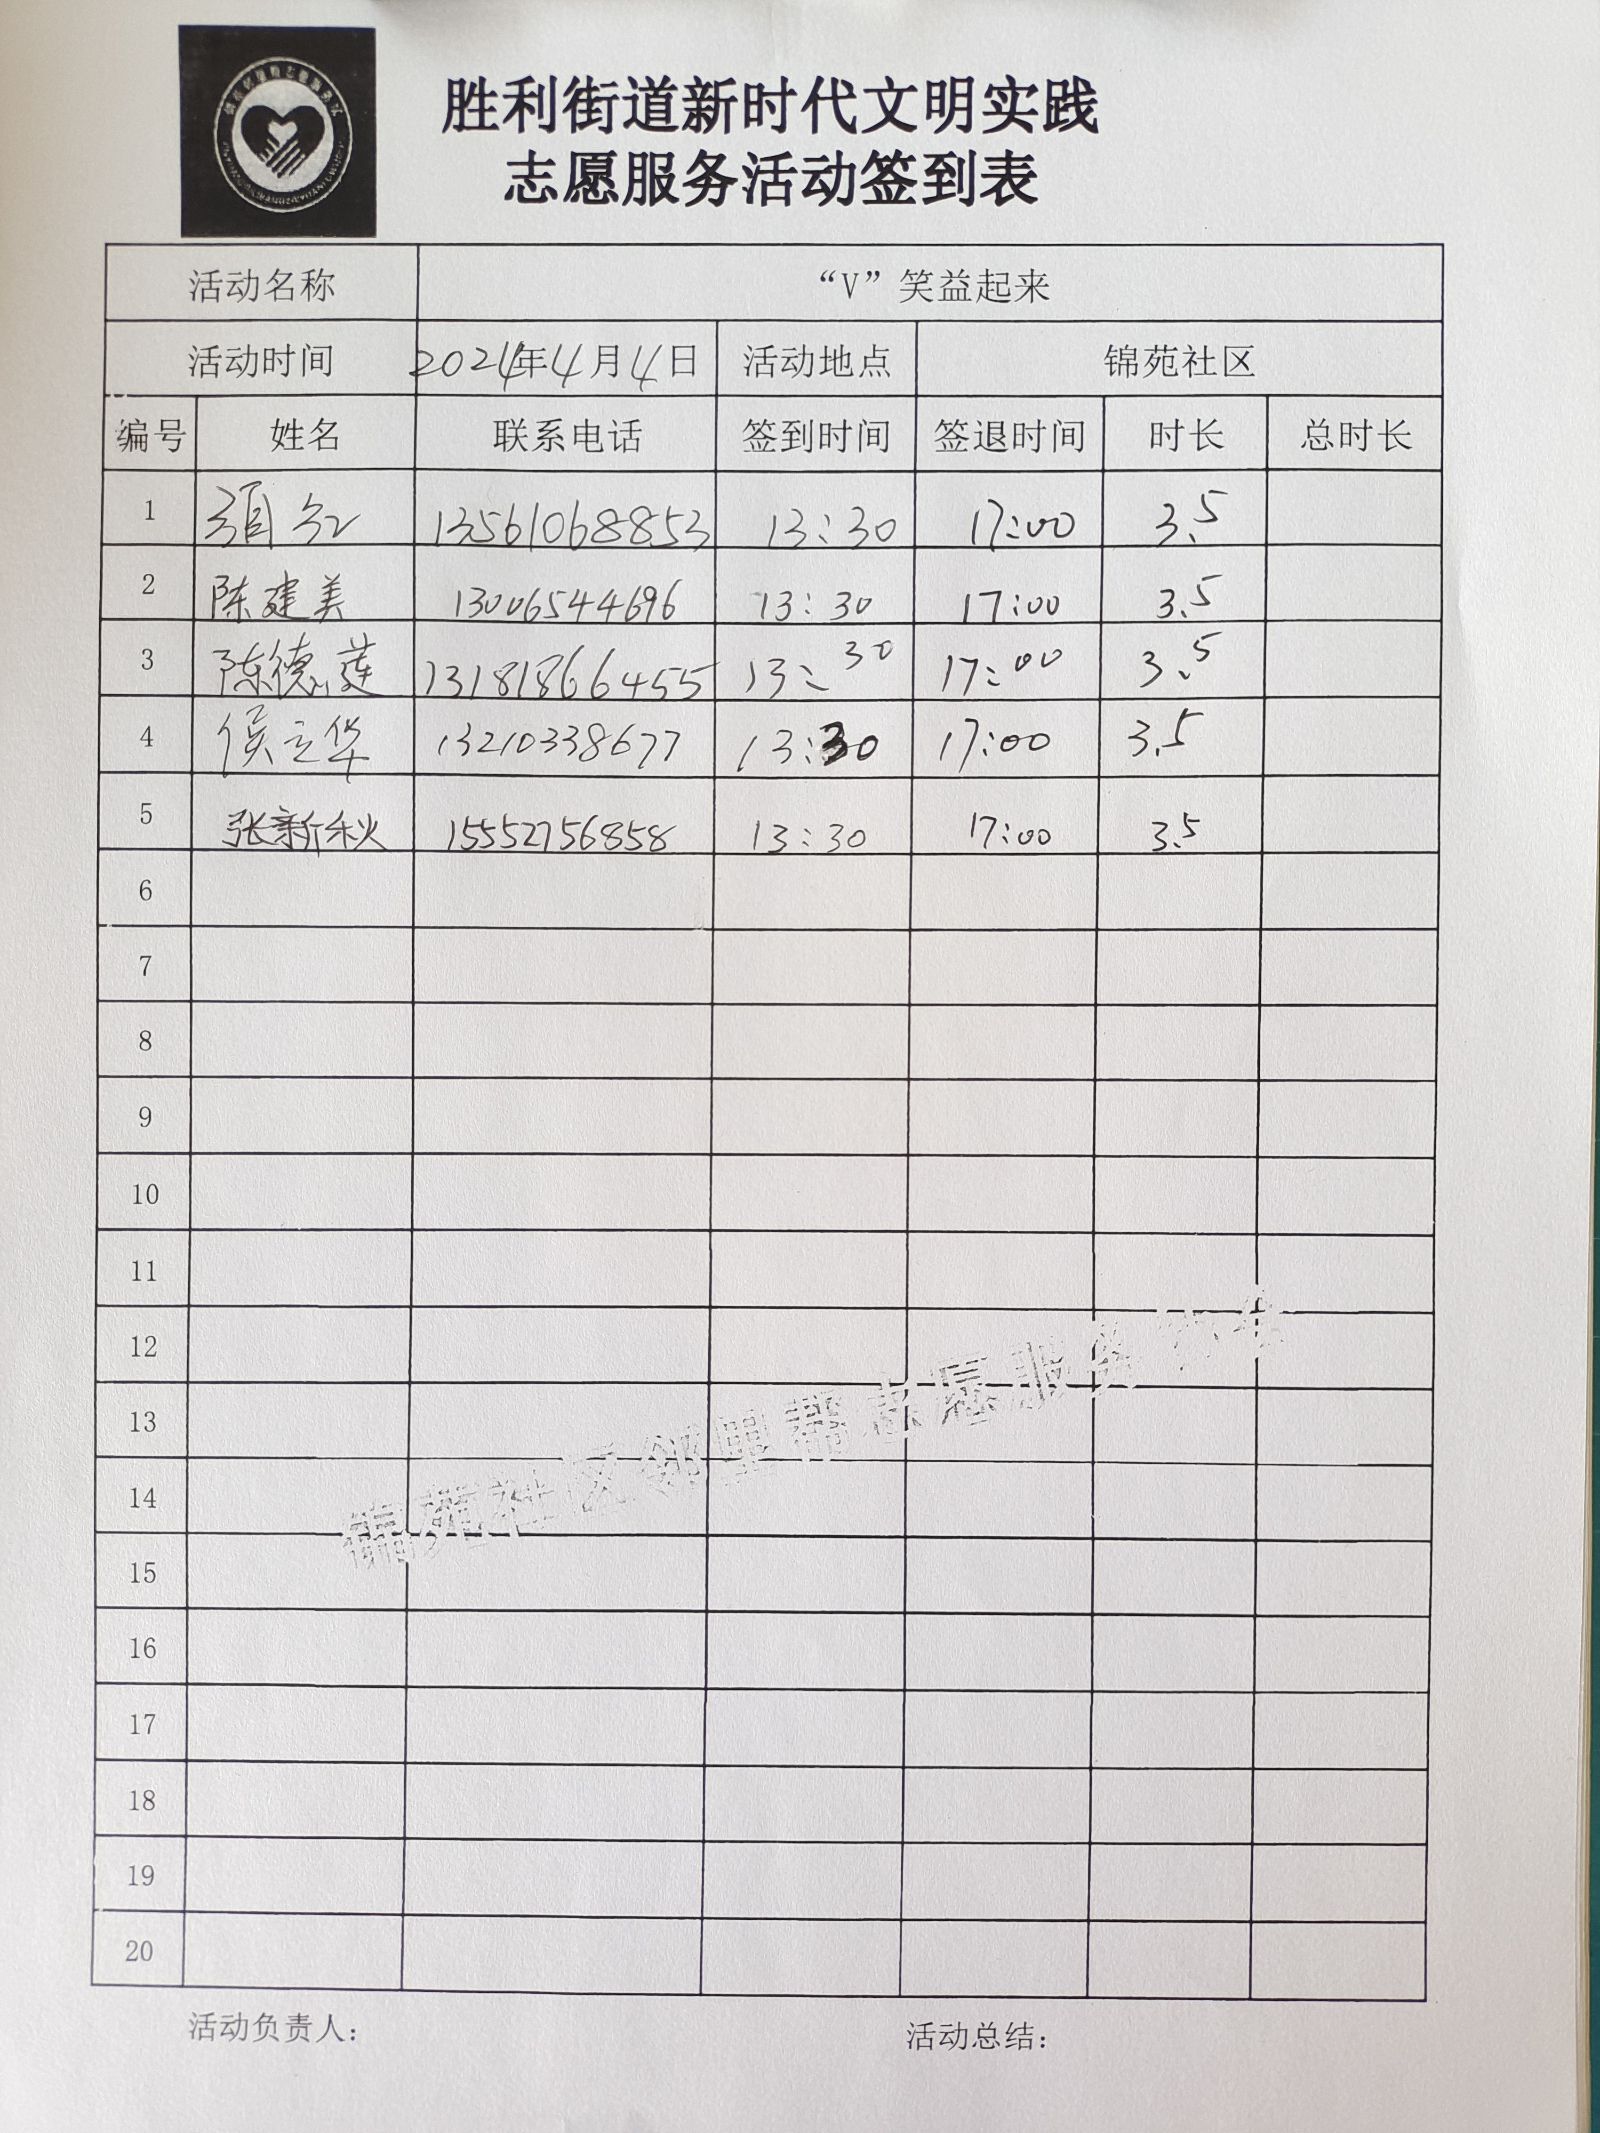 胜利街道新时代文明实践
志愿服务活动签到表
活动名称 “V”笑益起来
活动时间 2024年4月4日 活动地点 锦苑社区
编号 姓名 联系电话 签到时间 签退时间 时长 总时长
1 项红 13561068853 13:30 17:00 3.5
2 陈建美 13006544696 13:30 17:00 3.5
3 陈德莲 13181866455 13:30 17:00 3.5
4 侯立华 13210338677 13:30 17:00 3.5
5 张新秋 15552756858 13:30 17:00 3.5
6
7
8
9
10
11
12
13
14
15
16
17
18
19
20
锦苑社区邻里帮志愿服务
活动负责人: 活动总结: